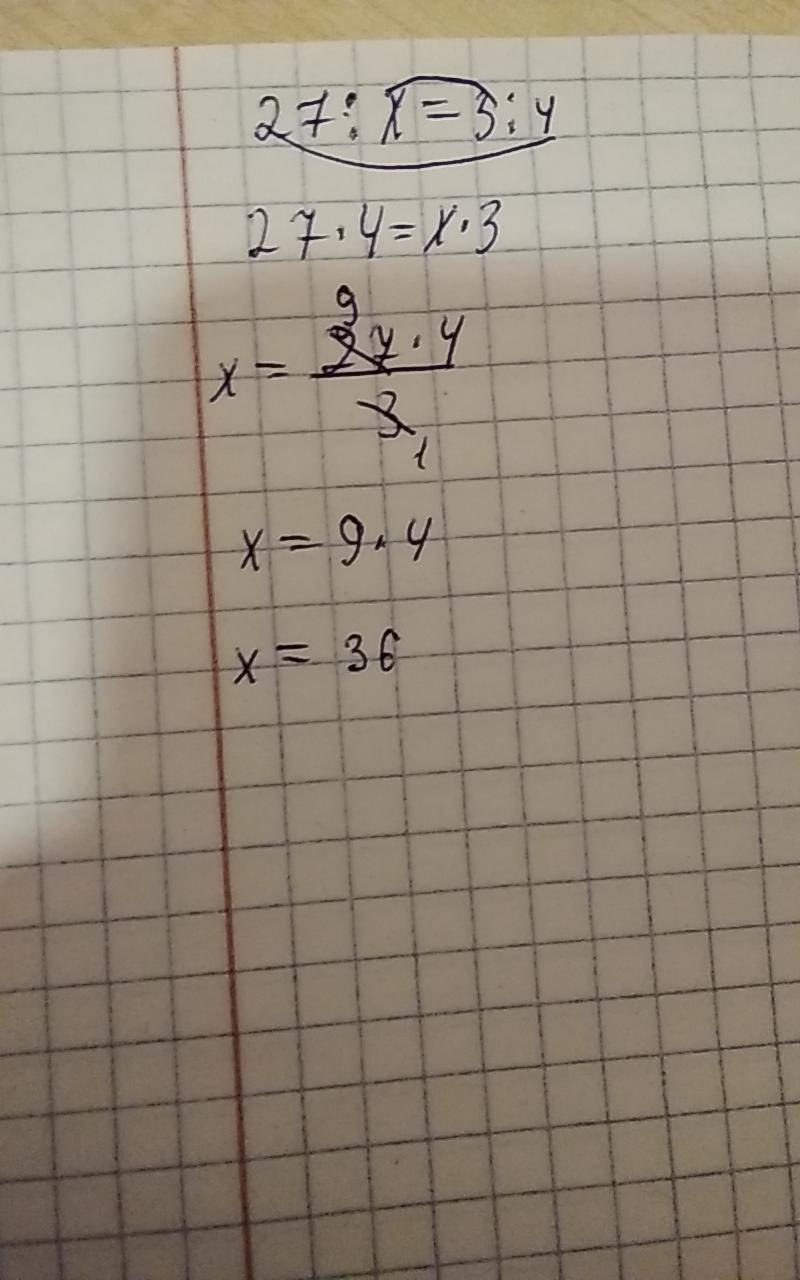 27 : x = 3 : 4
27 · 4 = x · 3
9
x = 27 · 4
3
1
x = 9 · 4
x = 36